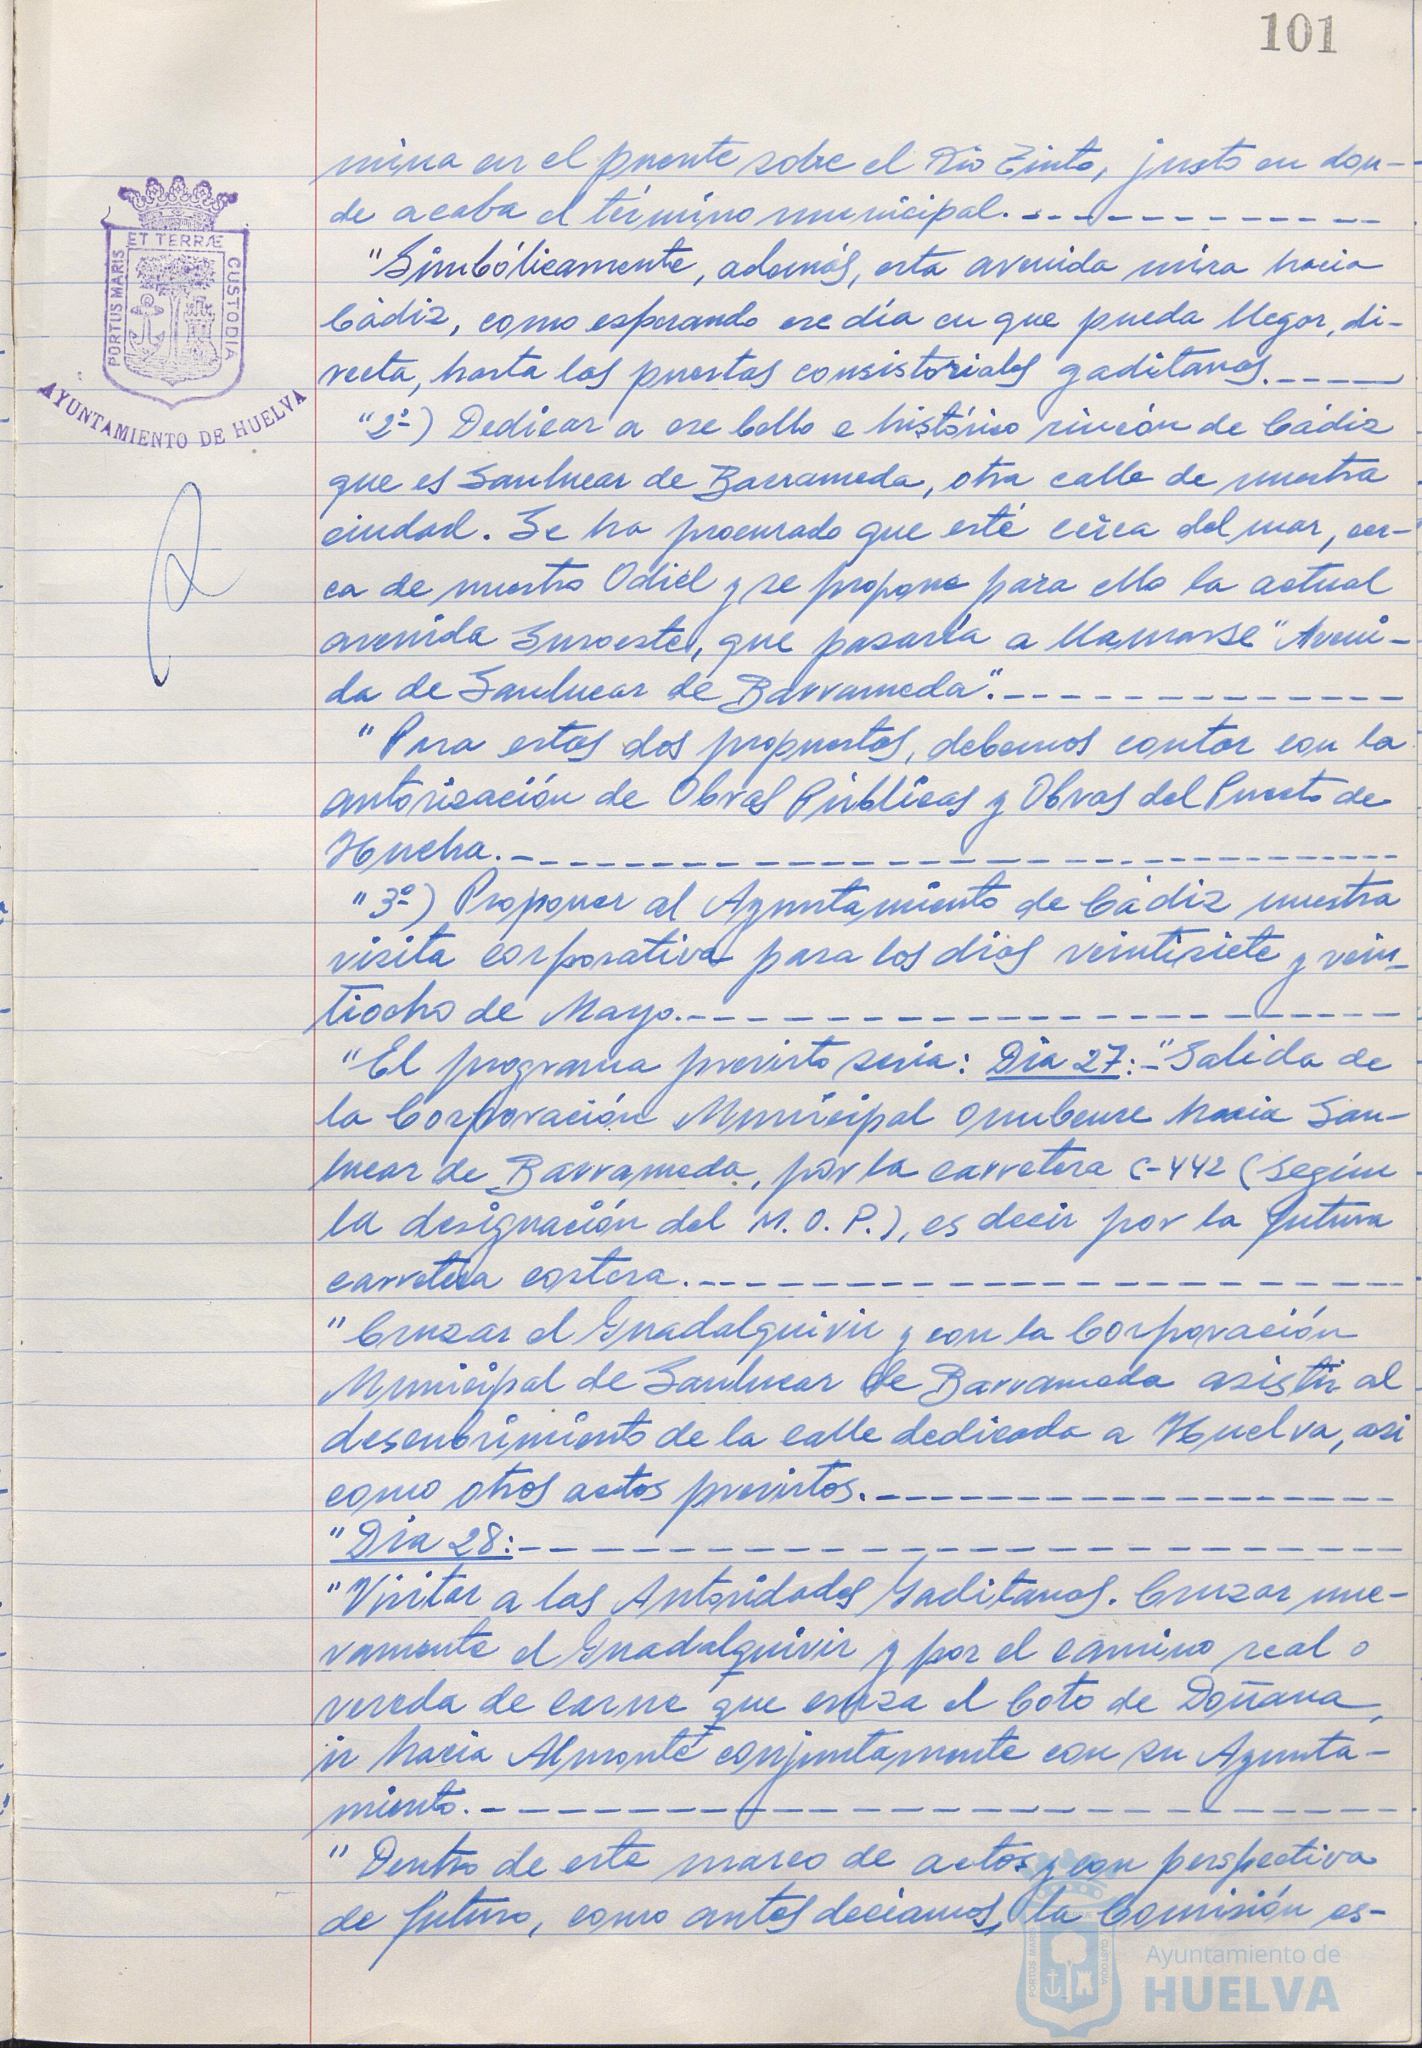 101
ET TERRÆ
PORTUS MARIS
CUSTODIA
AYUNTAMIENTO DE HUELVA
mina en el puente sobre el Rio Tinto, justo en don-
de acaba el término municipal.
"Simbólicamente, además, esta avenida mira hacia
Cádiz, como esperando ese día en que pueda llegar, di-
recta, hasta las puertas consistoriales gaditanas.
"2º) Dedicar a ese bello e histórico rincón de Cádiz
que es Sanlucar de Barrameda, otra calle de nuestra
ciudad. Se ha procurado que esté cerca del mar, cer-
ca de nuestro Odiel y se propone para ello la actual
avenida Suroeste, que pasaría a llamarse "Aveni-
da de Sanlucar de Barrameda".
"Para estas dos propuestas, debemos contar con la
autorización de Obras Públicas y Obras del Puerto de
Huelva.
"3º) Proponer al Ayuntamiento de Cádiz nuestra
visita corporativa para los dias veintisiete y vein-
tiocho de Mayo.
"El programa previsto seria: Dia 27:-"Salida de
la Corporación Municipal onubense hacia San-
lucar de Barrameda, por la carretera C-442 (según
la designación del M.O.P.), es decir por la futura
carretera costera.
"Cruzar el Guadalquivir y con la Corporación
Municipal de Sanlucar de Barrameda asistir al
descubrimiento de la calle dedicada a Huelva, asi
como otros actos previstos.
"Dia 28:
"Visitar a las Autoridades Gaditanas. Cruzar nue-
vamente el Guadalquivir y por el camino real o
vereda de carne que cruza el Coto de Doñana,
ir hacia Almonte conjuntamente con su Ayunta-
miento.
"Dentro de este marco de actos y con perspectiva
de futuro, como antes deciamos, la Comisión es-
Ayuntamiento de
HUELVA